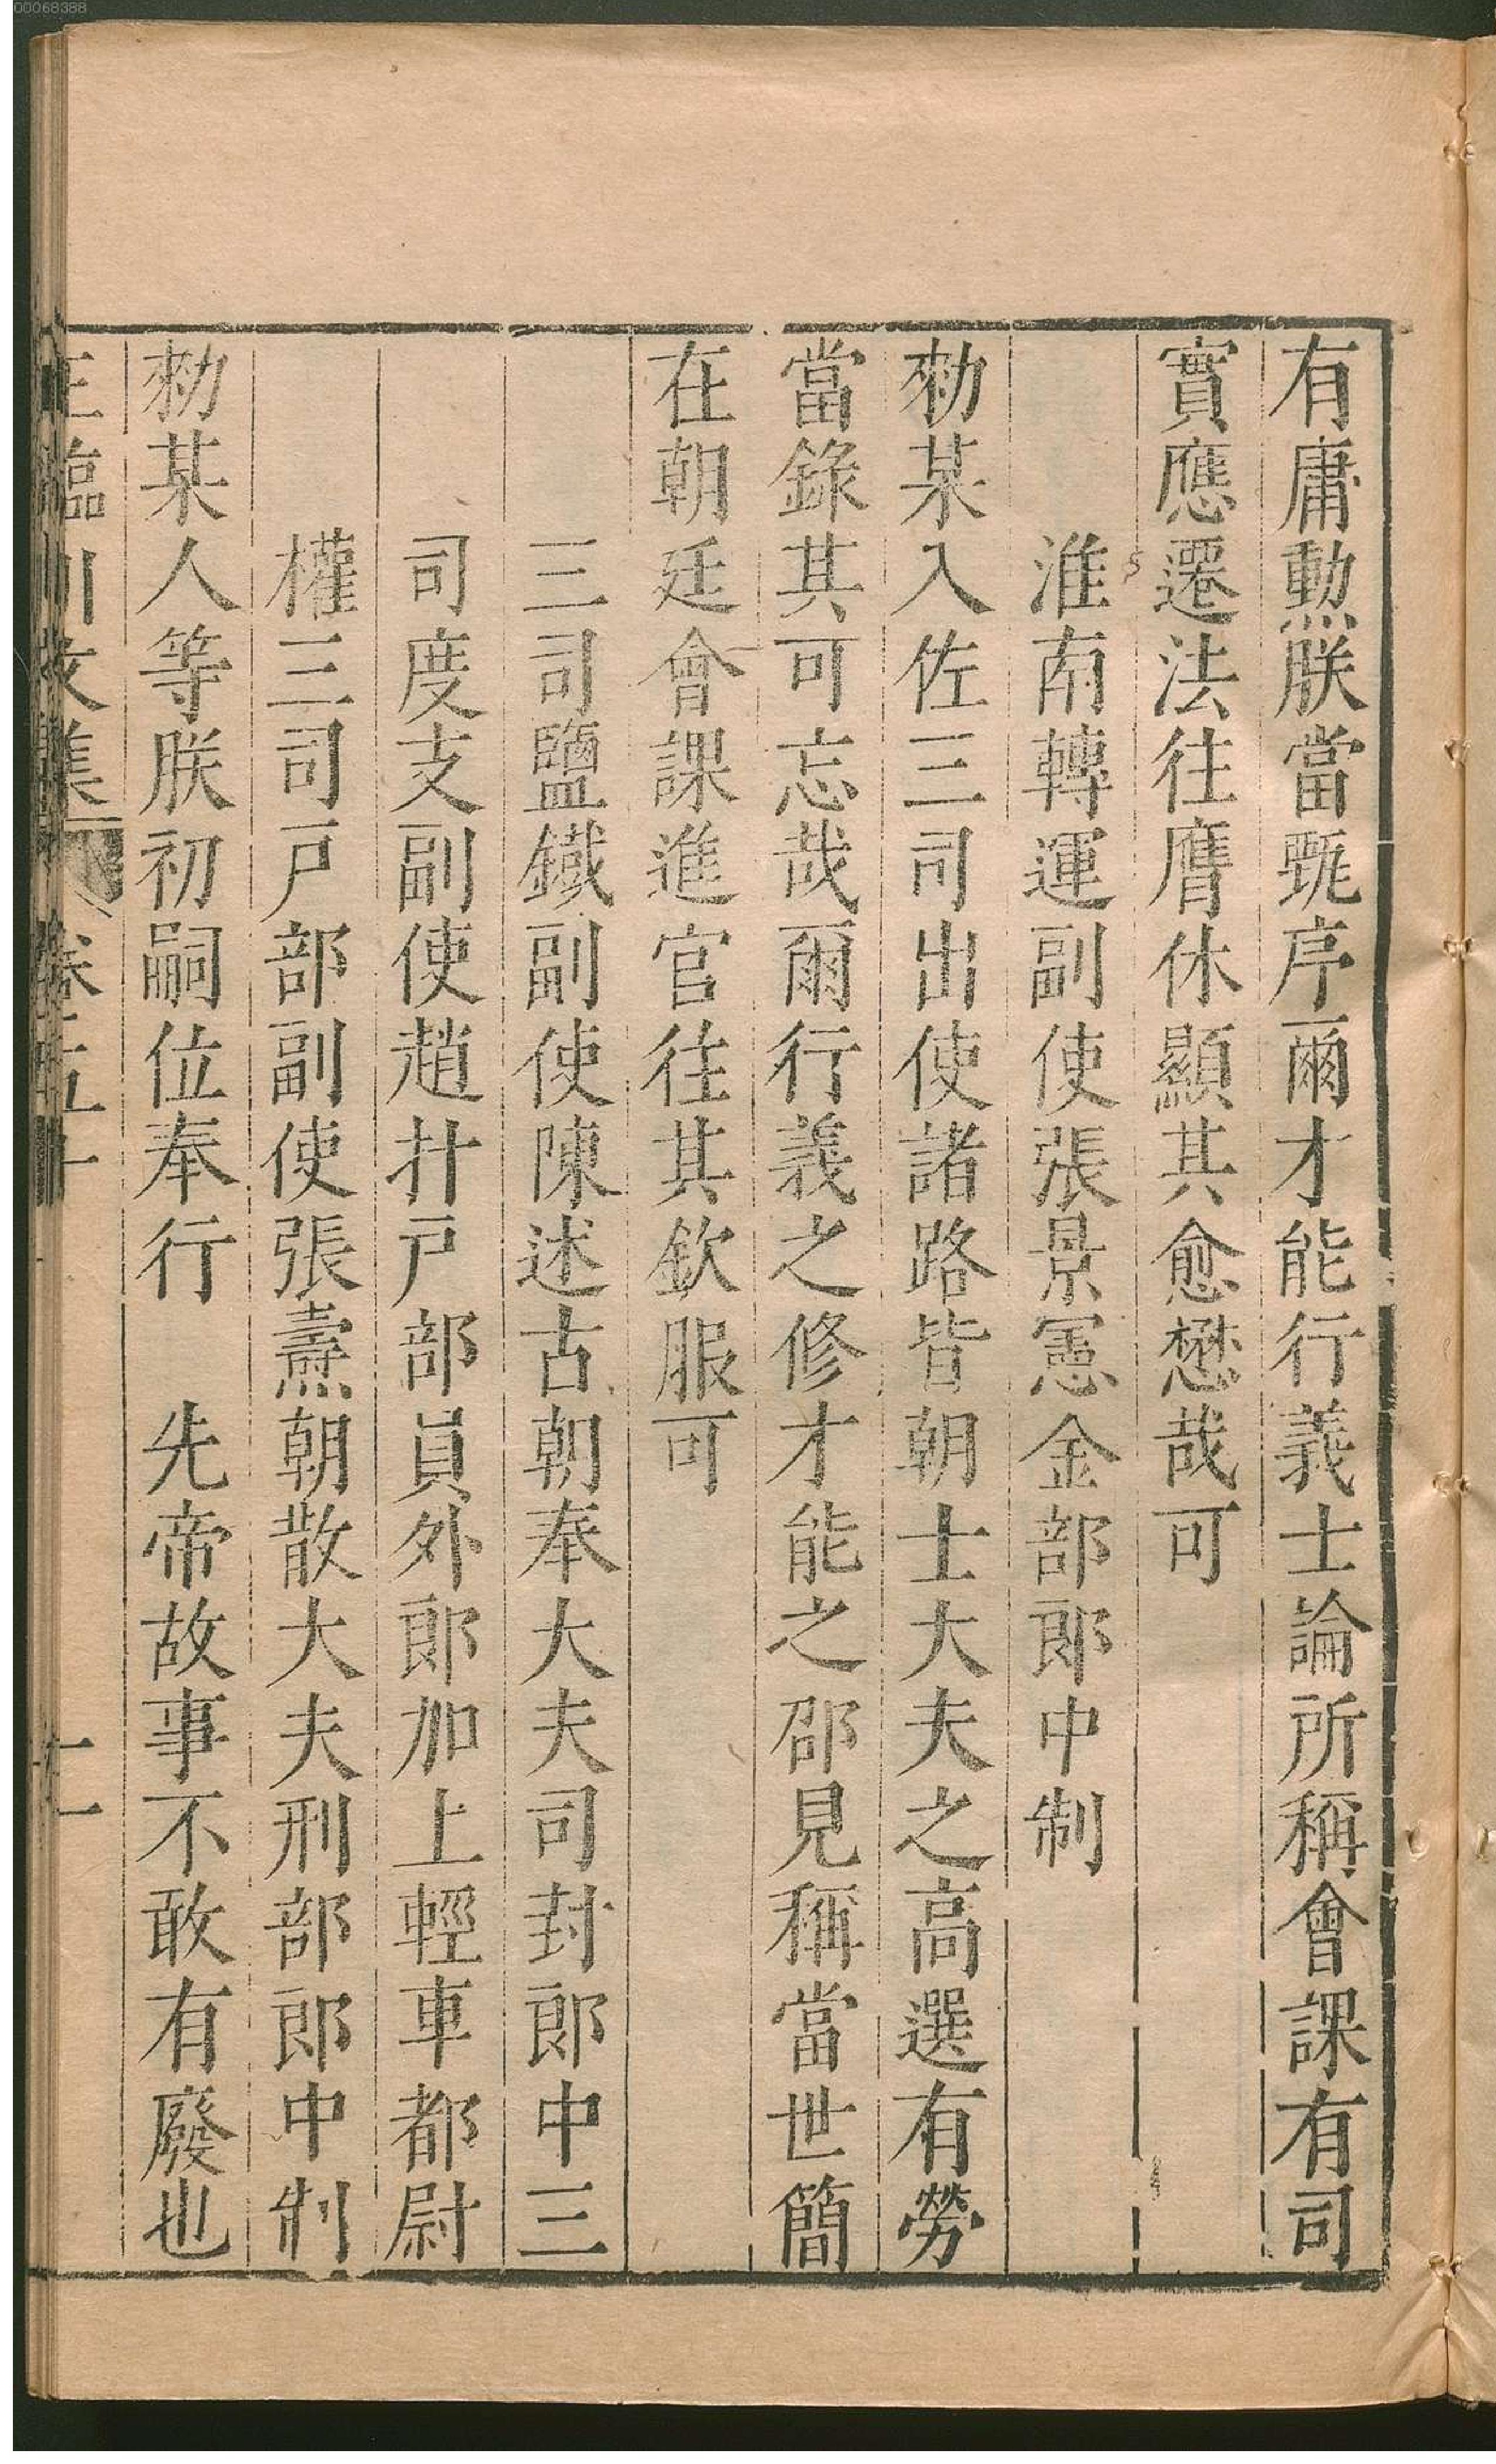 00068388
有庸勲朕當甄序爾才能行義士論所稱會課有司
實應遷法往膺休顯其愈懋哉可
淮南轉運副使張景憲金部郎中制
勑某入佐三司出使諸路皆朝士大夫之高選有勞
當錄其可忘哉爾行義之修才能之邵見稱當世簡
在朝廷會課進官往其欽服可
三司鹽鐵副使陳述古朝奉大夫司封郎中三
司度支副使趙抃戸部員外郎加上輕車都尉
權三司戸部副使張燾朝散大夫刑部郎中制
勑某人等朕初嗣位奉行　先帝故事不敢有廢也
王臨川文集 卷五十 十一